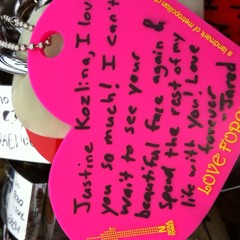 Justine Kozlina, I love
you so much! I can't
wait to see your
beautiful face again &
spend the rest of my
life with you! Love
forever
Jared
LOVE FORE
a landmark of metropolitan
N